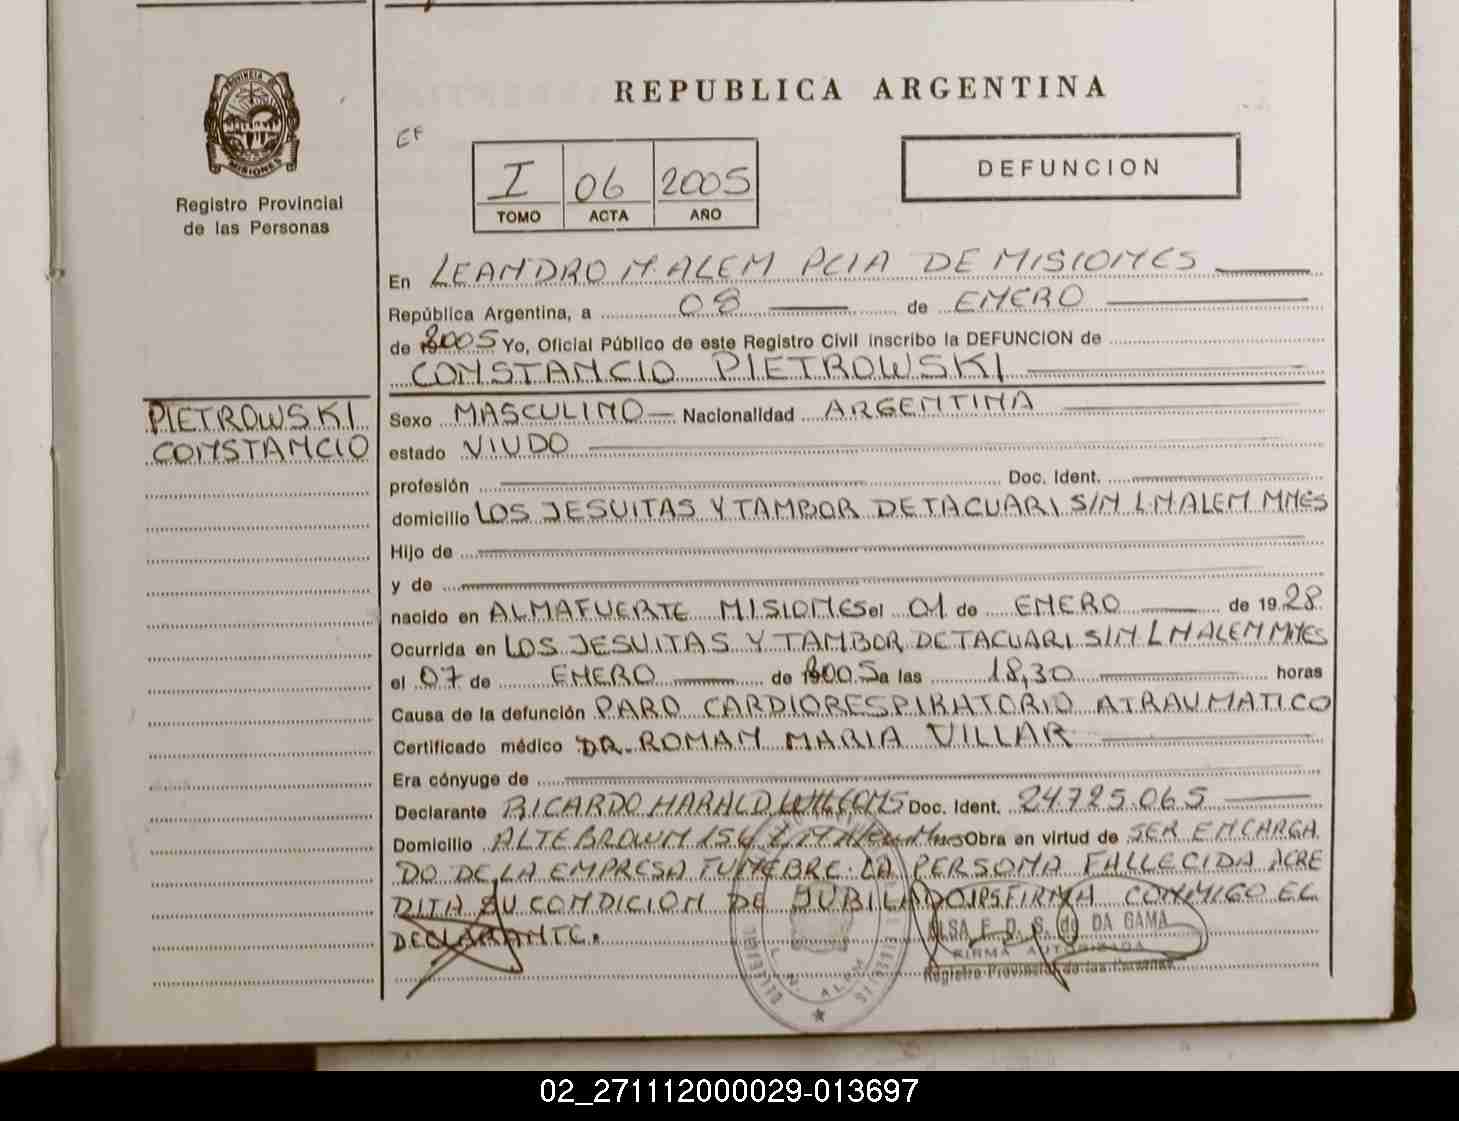 PROVINCIA DE
MISIONES
Registro Provincial
de las Personas
REPUBLICA ARGENTINA
EF
I 06 2005
TOMO ACTA AÑO
DEFUNCION
En LEANDRO N. ALEM PCIA DE MISIONES
República Argentina, a 08 de ENERO
de 2005 Yo, Oficial Público de este Registro Civil inscribo la DEFUNCION de
CONSTANCIO PIETROWSKI
PIETROWSKI
CONSTANCIO
Sexo MASCULINO Nacionalidad ARGENTINA
estado VIUDO
profesión Doc. Ident.
domicilio LOS JESUITAS Y TAMBOR DE TACUARI S/N L.N ALEM MNES
Hijo de
y de
nacido en ALMAFUERTE MISIONES el 01 de ENERO de 1928
Ocurrida en LOS JESUITAS Y TAMBOR DE TACUARI S/N L N ALEM MNES
el 07 de ENERO de 2005 a las 18,30 horas
Causa de la defunción PARO CARDIORESPIRATORIO ATRAUMATICO
Certificado médico DR. ROMAN MARIA VILLAR
Era cónyuge de
Declarante RICARDO HARALD Doc. Ident. 24.725.065
Domicilio ALTE BROWN L N Alem Mnes Obra en virtud de SER ENCARGA
DO DE LA EMPRESA FUNEBRE. LA PERSONA FALLECIDA ACRE
DITA SU CONDICION DE JUBILADO IPS FIRMA CONMIGO EL
DECLARANTE.
ELSA E. D. S. de DA GAMA
FIRMA AUTORIZADA
Registro Provincial de las Personas
L. N. ALEM
02_271112000029-013697